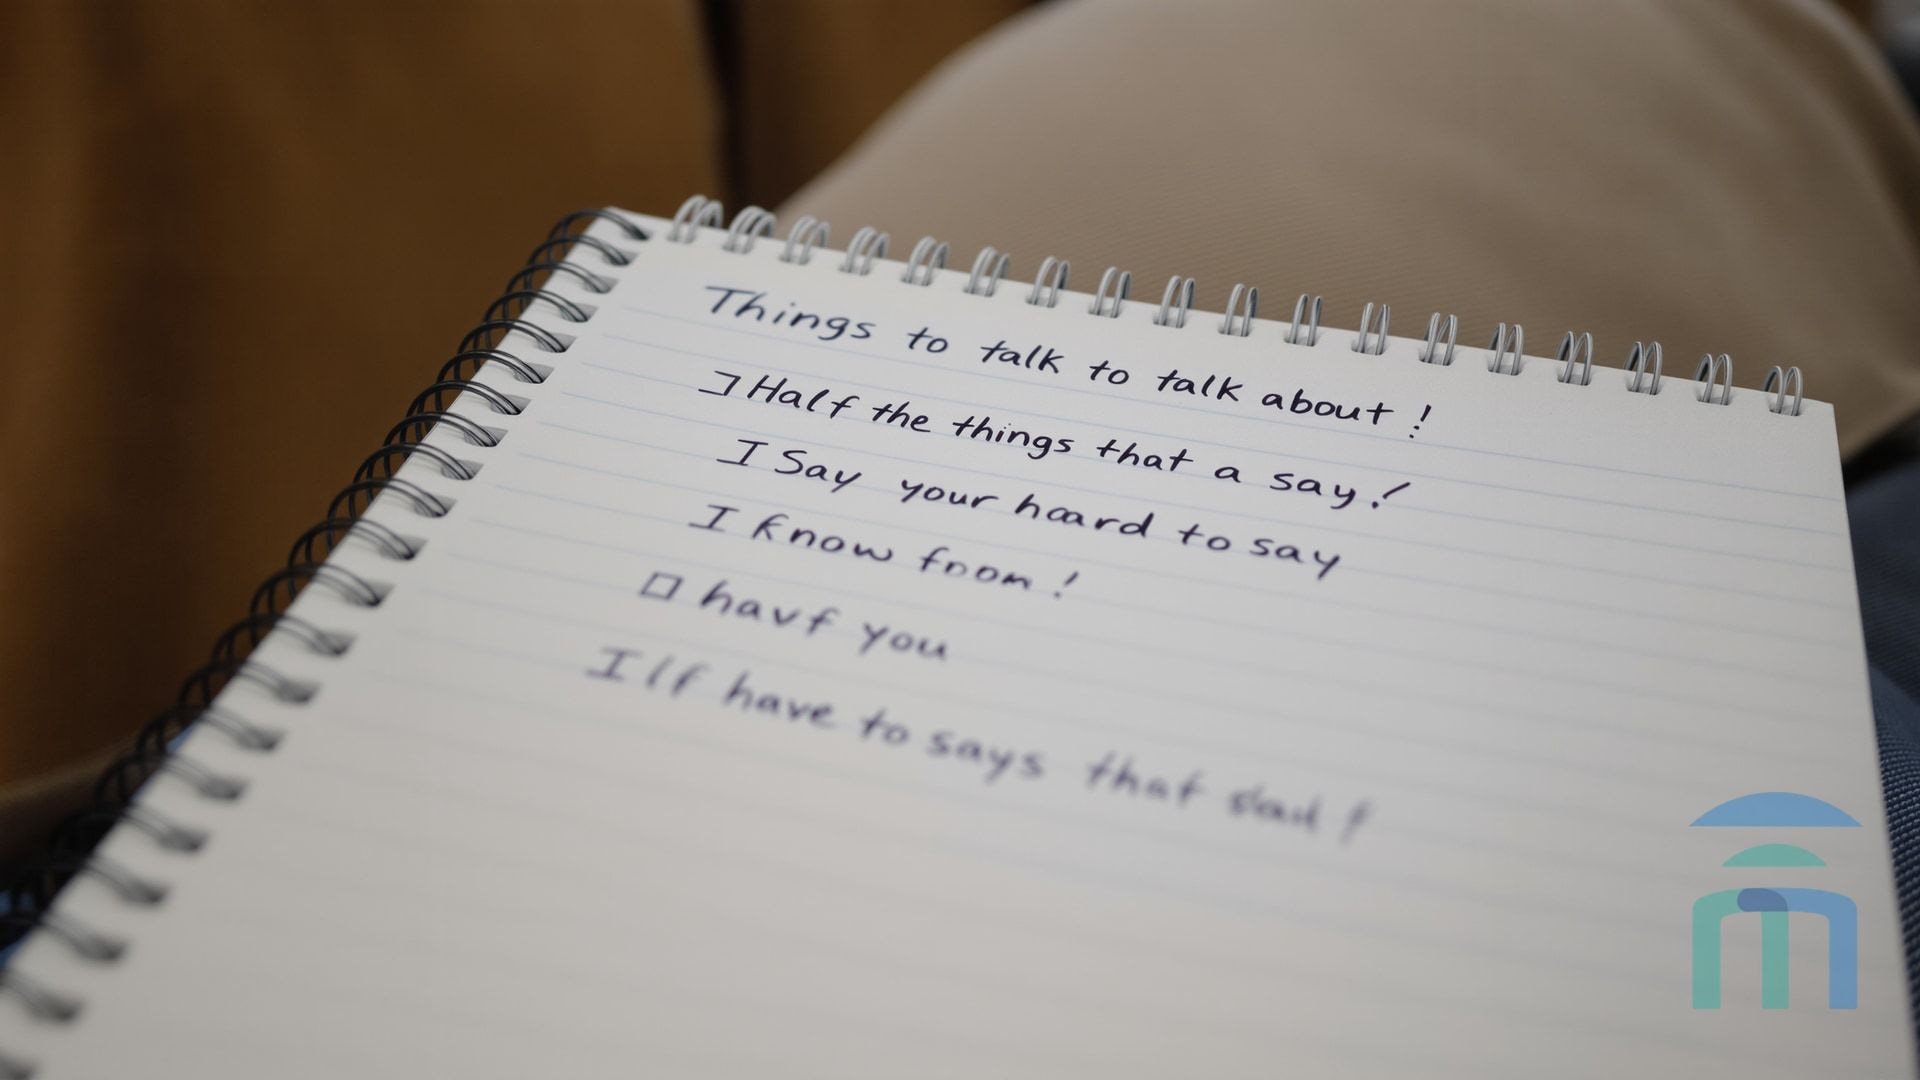 Things to talk to talk about !
Half the things that a say!
I Say your hoard to say
I know foom !
havf you
I lf have to says that